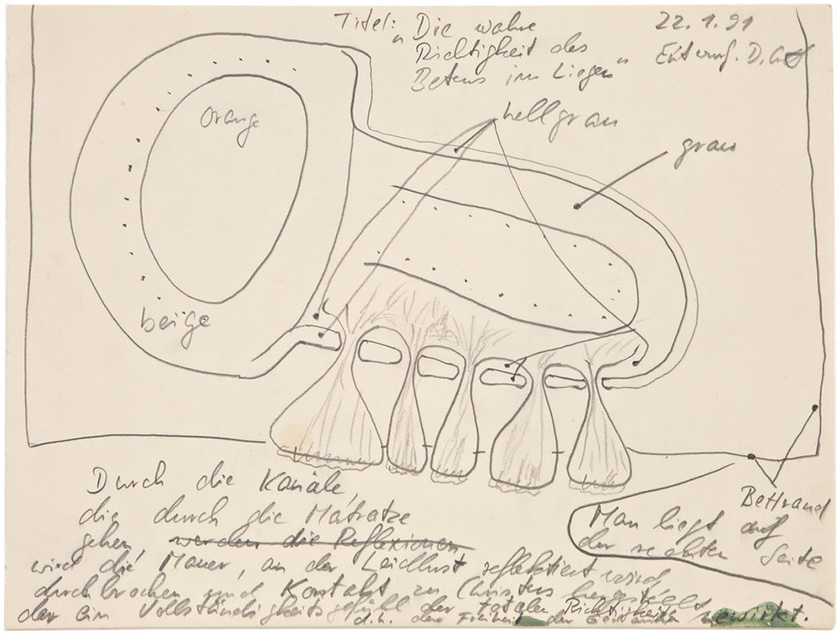 Titel: „Die wahre
Richtigkeit des
Betens im Liegen"
22.1.91
Entwurf. D.
orange
hellgrau
grau
beige
Bettrand
Man liegt auf
der rechten Seite
Durch die Kanäle
die durch die Matratze
gehen werden die Reflexionen
wird die Mauer, an der Leidlust reflektiert wird
durchbrochen und Kontakt zu Christus hergestellt
der ein Vollständigkeitsgefühl der totalen Richtigkeit
d.h. der Freiheit der bewirkt.